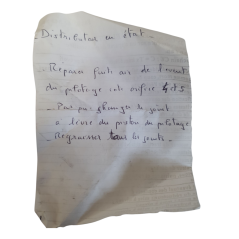 - Distributeur en état -
- Reparer fuite air de l'évent
du pilotage coté orifice 4 et 5
- Pour ça changer le joint
a levre du piston du pilotage
- Regraisser tous les joints -